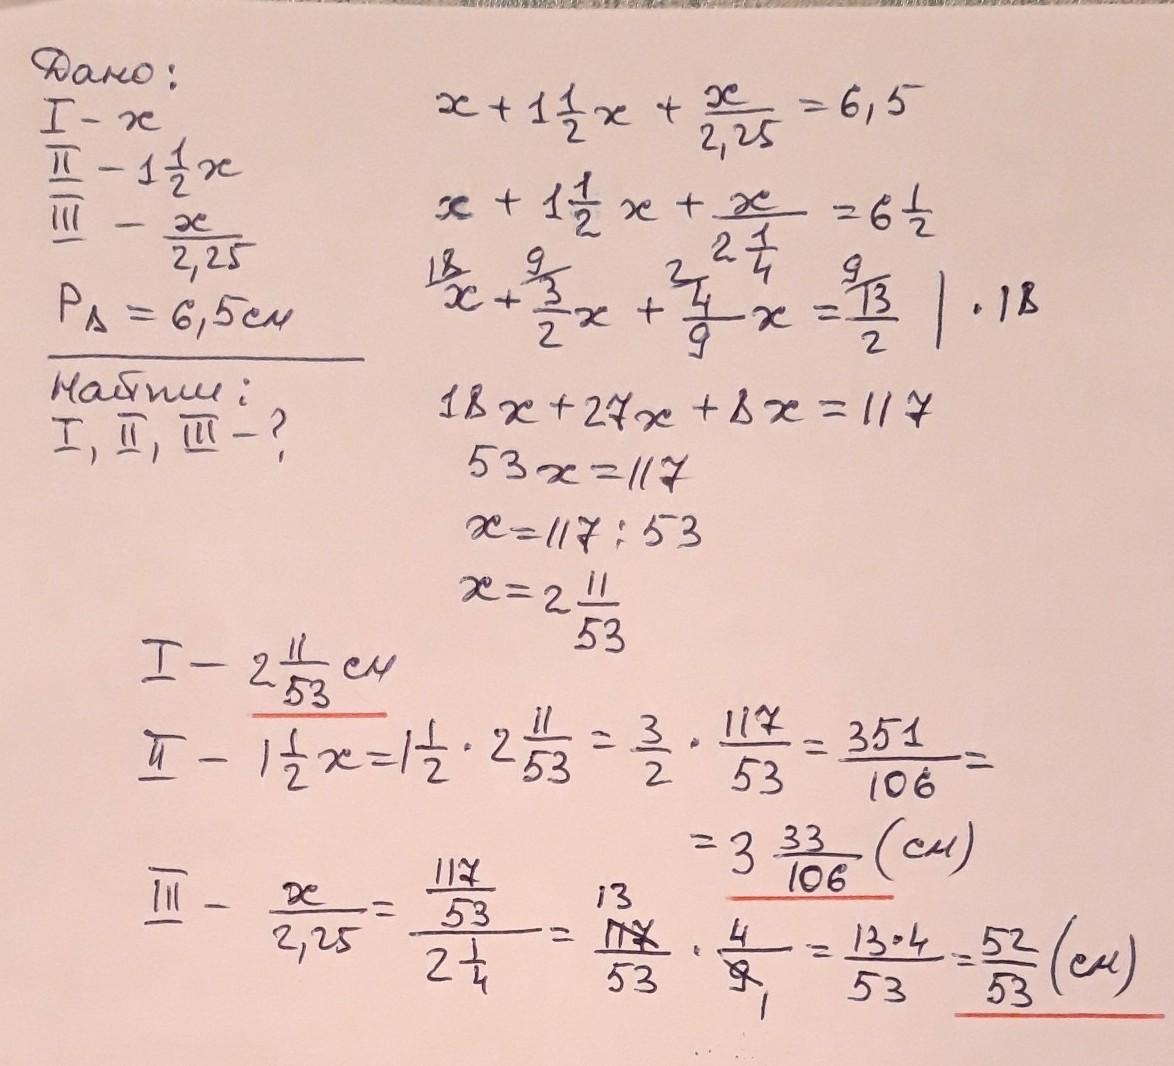 Дано:
I - x
II - 1 1/2 x
III - x/2,25
P△ = 6,5 см
Найти:
I, II, III - ?
x + 1 1/2 x + x/2,25 = 6,5
x + 1 1/2 x + x/(2 1/4) = 6 1/2
18/ x + 9/ 3/2 x + 2/ 4/9 x = 9/ 13/2 | · 18
18x + 27x + 8x = 117
53x = 117
x = 117 : 53
x = 2 11/53
I - 2 11/53 см
II - 1 1/2 x = 1 1/2 · 2 11/53 = 3/2 · 117/53 = 351/106 =
= 3 33/106 (см)
III - x/2,25 = (117/53)/(2 1/4) = 13 117/53 · 4/9 1 = 13·4/53 = 52/53 (см)